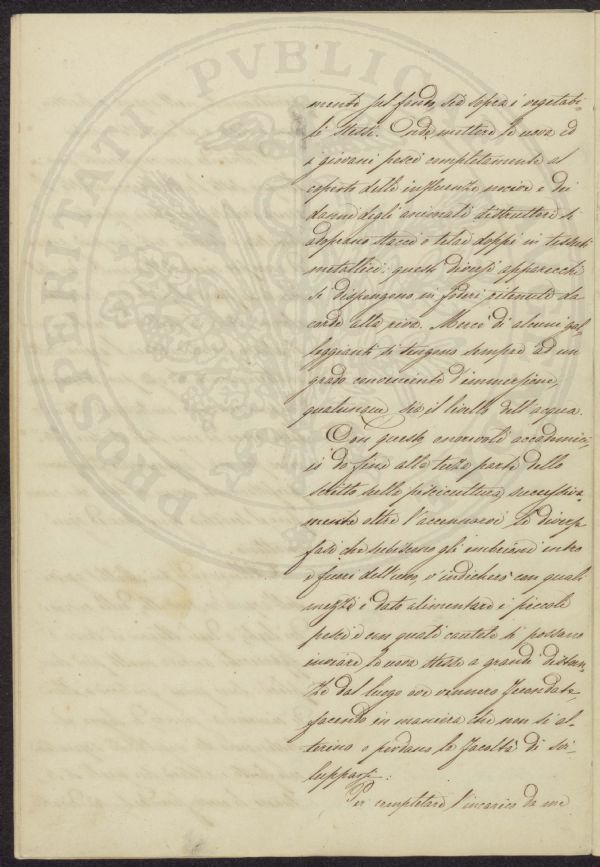 PROSPERITATI PVBLICAE
mento sul fondo, sia sopra i vegetabi-
li stessi. Onde mettere le uova ed
i giovani pesci completamente al
coperto delle influenze nocive e dei
danni degli animali distruttori si
adoprano stacci o telai doppi in tessuti
metallici: questi diversi apparecchi
si dispongono in foderi ritenuti da
corde alla riva. Mercè di alcuni gal-
leggianti si tengono sempre ad un
grado conveniente d'immersione,
qualunque sia il livello dell'acqua.
Con questo onorevoli accademi-
ci do fine alla terza parte dello
scritto sulla piscicultura, successiva-
mente oltre l'accennarvi le diverse
fasi che subiscono gli embrioni entro
e fuori dell'uovo, v'indicherò con quali
mezzi è dato alimentare i piccoli
pesci e con quali cautele si possano
inviare le uova stesse a grandi distan-
ze dal luogo ove vennero fecondate,
facendo in maniera che non si al-
terino o perdano le facoltà di svi-
lupparsi.
Per completare l'incarico da me